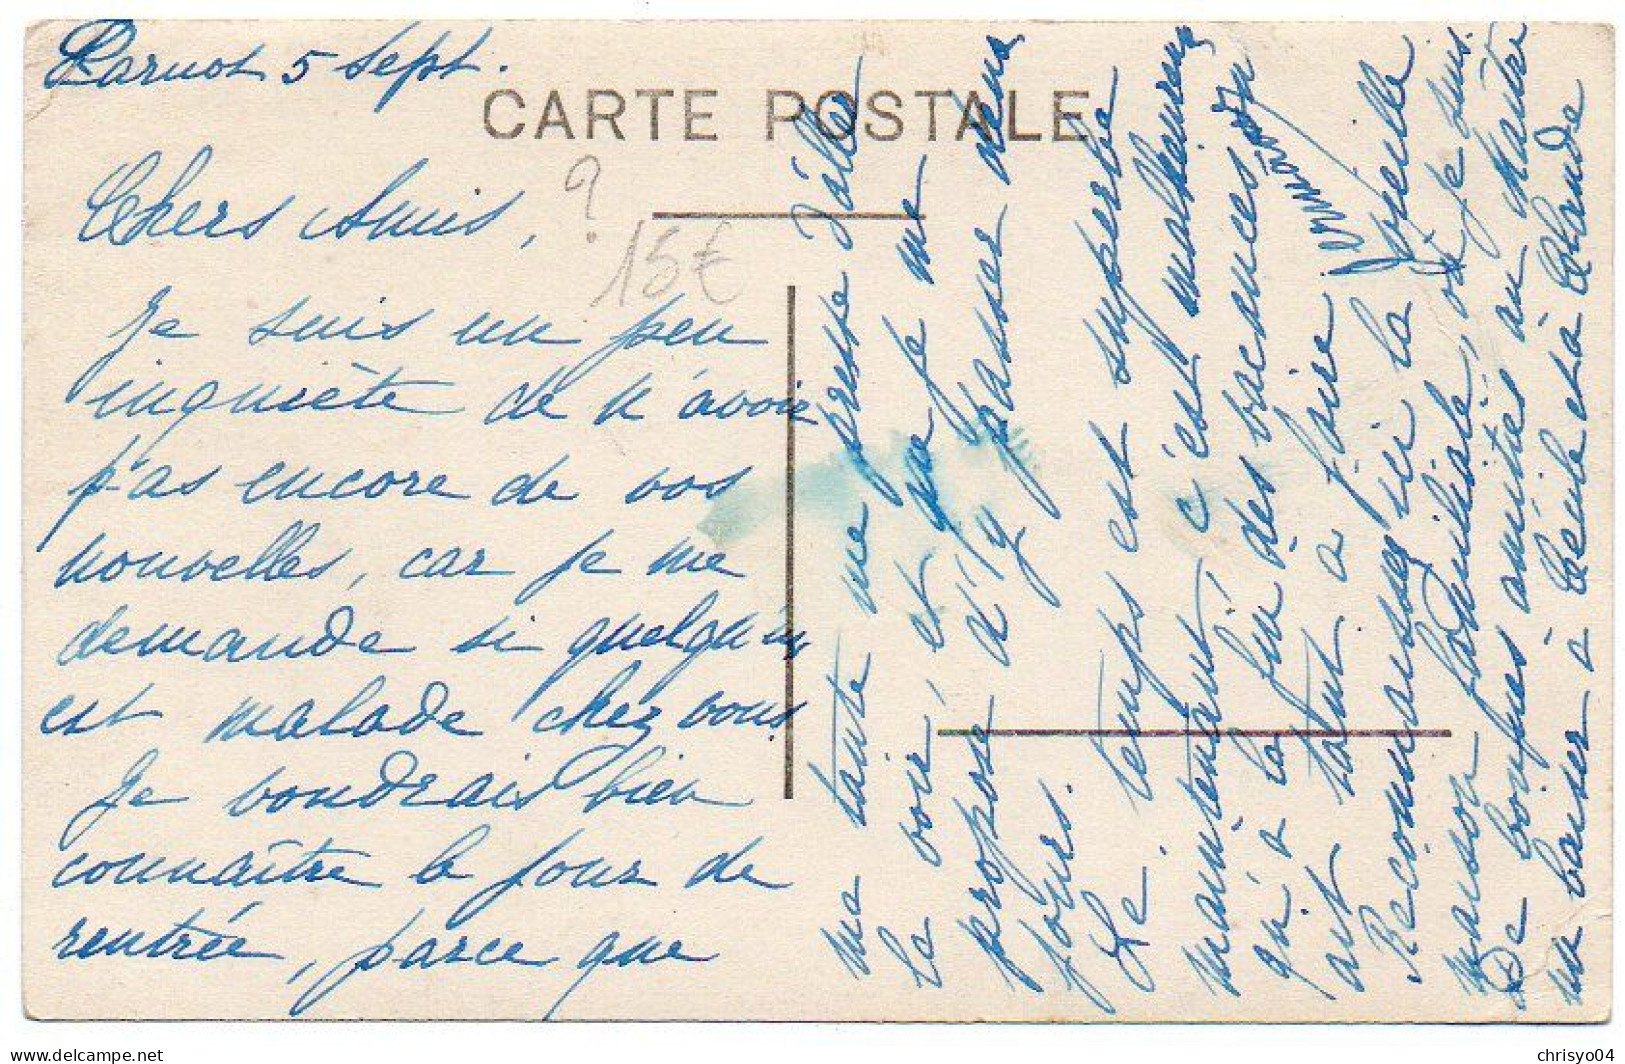 Parnot 5 Sept.
CARTE POSTALE
Chers Amis,
?
15€
Je suis un peu
inquiète de n'avoir
pas encore de vos
nouvelles, car je me
demande si quelqu'un
est malade chez vous
Je voudrais bien
connaître le jour de
rentrée, parce que
ma tante me presse d'aller
la voir, et que je me
propose d'y passer
jours.
Le temps est superbe
maintenant, c'est malheureux
qu'à la fin des vacances
ait tant à faire.
Reconnaissez ici la vieille
maison familiale, où je suis.
De bonnes amitiés au Maître
un baiser à et à Claude
chrisyo04